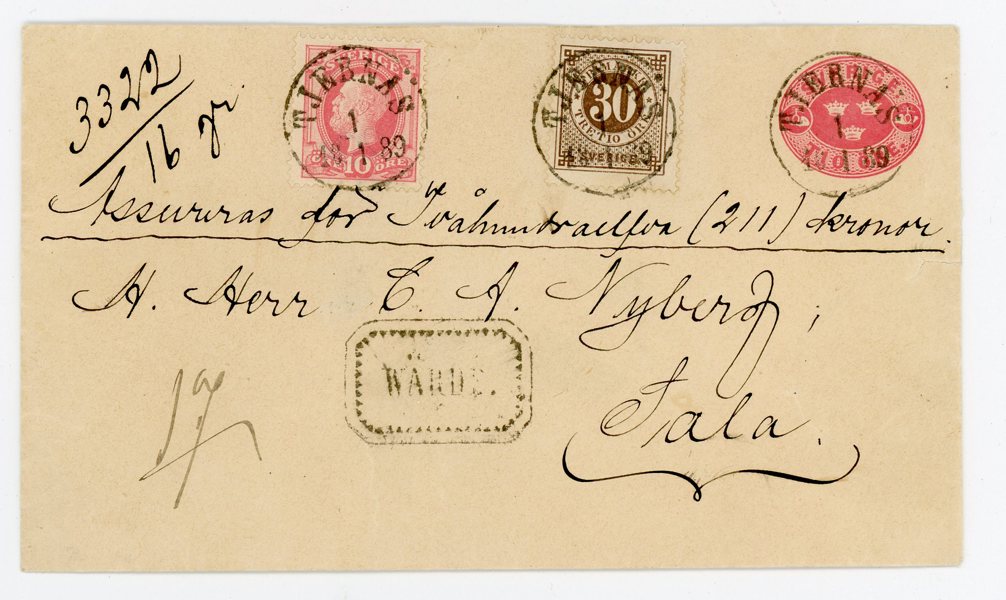 3322
16 gr
SVERIGE
10 ÖRE
TJERNÄS
1
89
30
TRETIO ÖRE
SVERIGE
TJERNÄS
TJERNÄS
1
89
Assureras för Tvåhundraelfva (211) kronor.
H. Herr C. A. Nyberg,
WÄRDE.
Sala.